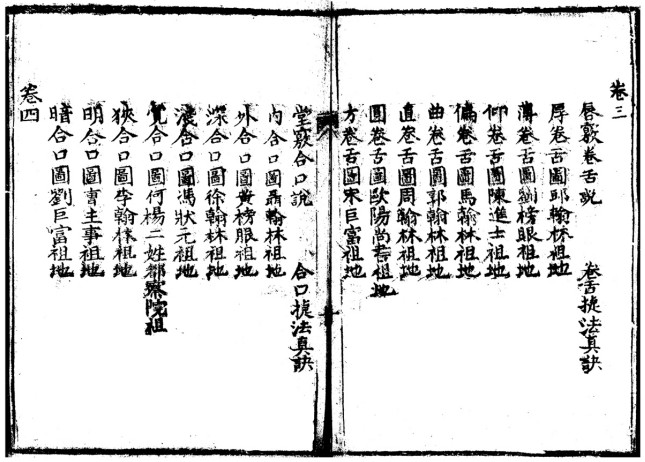 卷三
唇裀卷舌説　卷舌捷法真訣
厚卷舌圖邱翰林祖地
薄卷舌圖劉榜眼祖地
仰卷舌圖陳進士祖地
偏卷舌圖馬翰林祖地
曲卷舌圖郭翰林祖地
直卷舌圖周翰林祖地
圓卷舌圖歐陽尚書祖地
方卷舌圖宋巨富祖地
堂裀合口説　合口捷法真訣
內合口圖聶翰林祖地
外合口圖黃榜眼祖地
深合口圖徐翰林祖地
淺合口圖馮狀元祖地
寬合口圖何楊二姓都察院祖
狹合口圖李翰林祖地
明合口圖曹主事祖地
暗合口圖劉巨富祖地
卷四